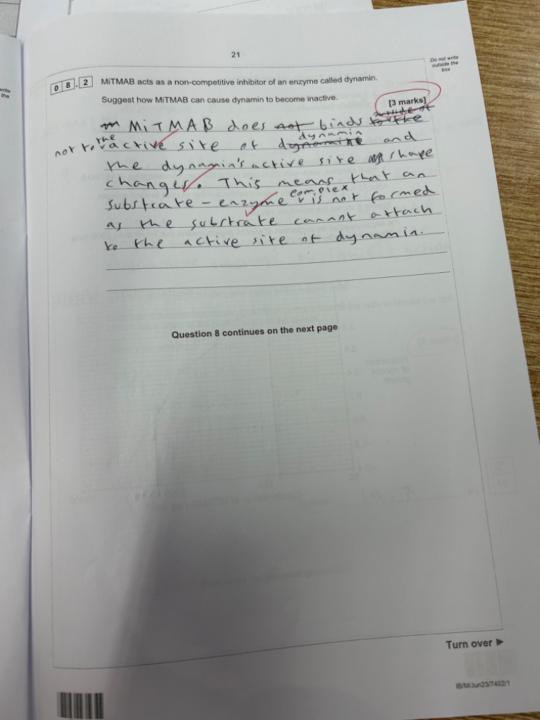 21
Do not write
outside the
box
0 8 . 2 MiTMAB acts as a non-competitive inhibitor of an enzyme called dynamin.
Suggest how MiTMAB can cause dynamin to become inactive.
[3 marks]
MiTMAB does not binds to the
not to the active site of dynamin and
the dynamin's active site shape
changes. This means that an
substrate - enzyme complex is not formed
as the substrate cannot attach
to the active site of dynamin.
Question 8 continues on the next page
Turn over ►
IB/M/Jun23/7402/1